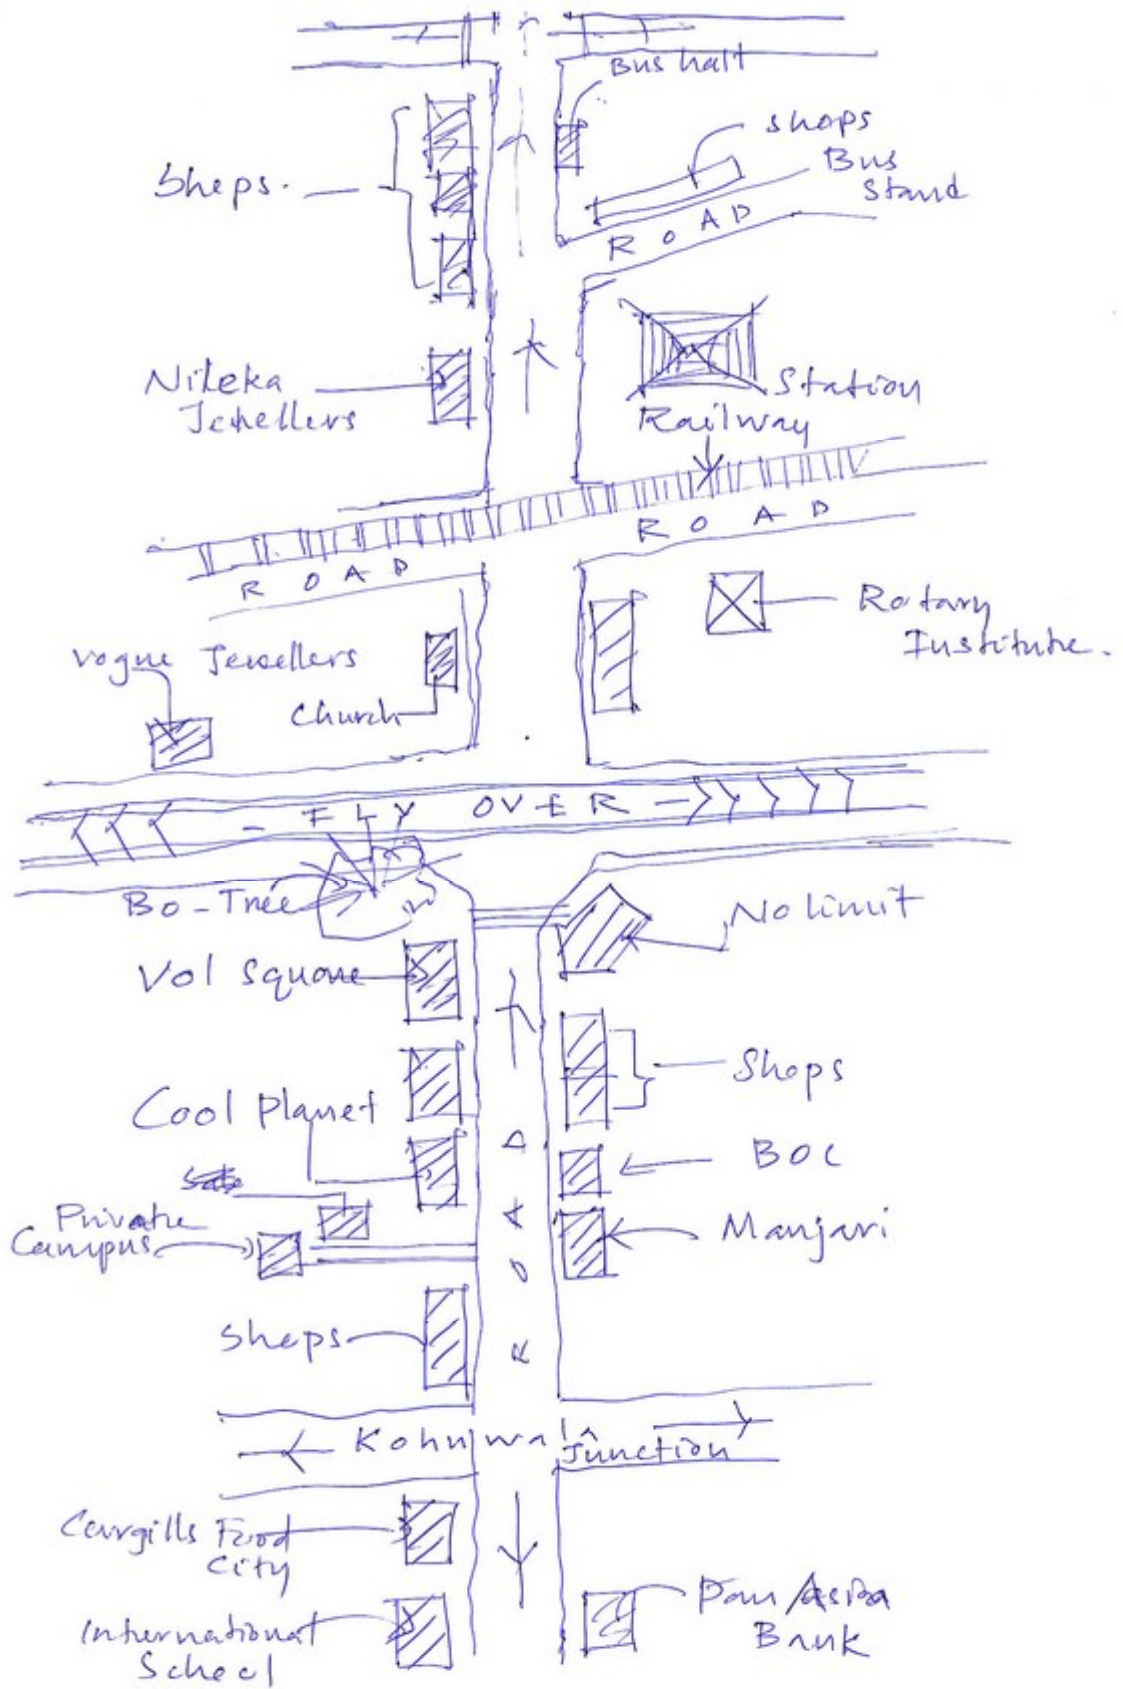 Bus halt
shops
Bus
Stand
Shops.
ROAD
Nileka
Jewellers
Station
Railway
ROAD
ROAD
Rotary
Institute.
Vogue Jewellers
Church
FLY OVER
Bo-Tree
No limit
Vol Square
Shops
Cool Planet
BOC
Private
Campus
Manjari
ROAD
Shops
Kohuwala
Junction
Cargills Food
City
International
School
Pan Asia
Bank